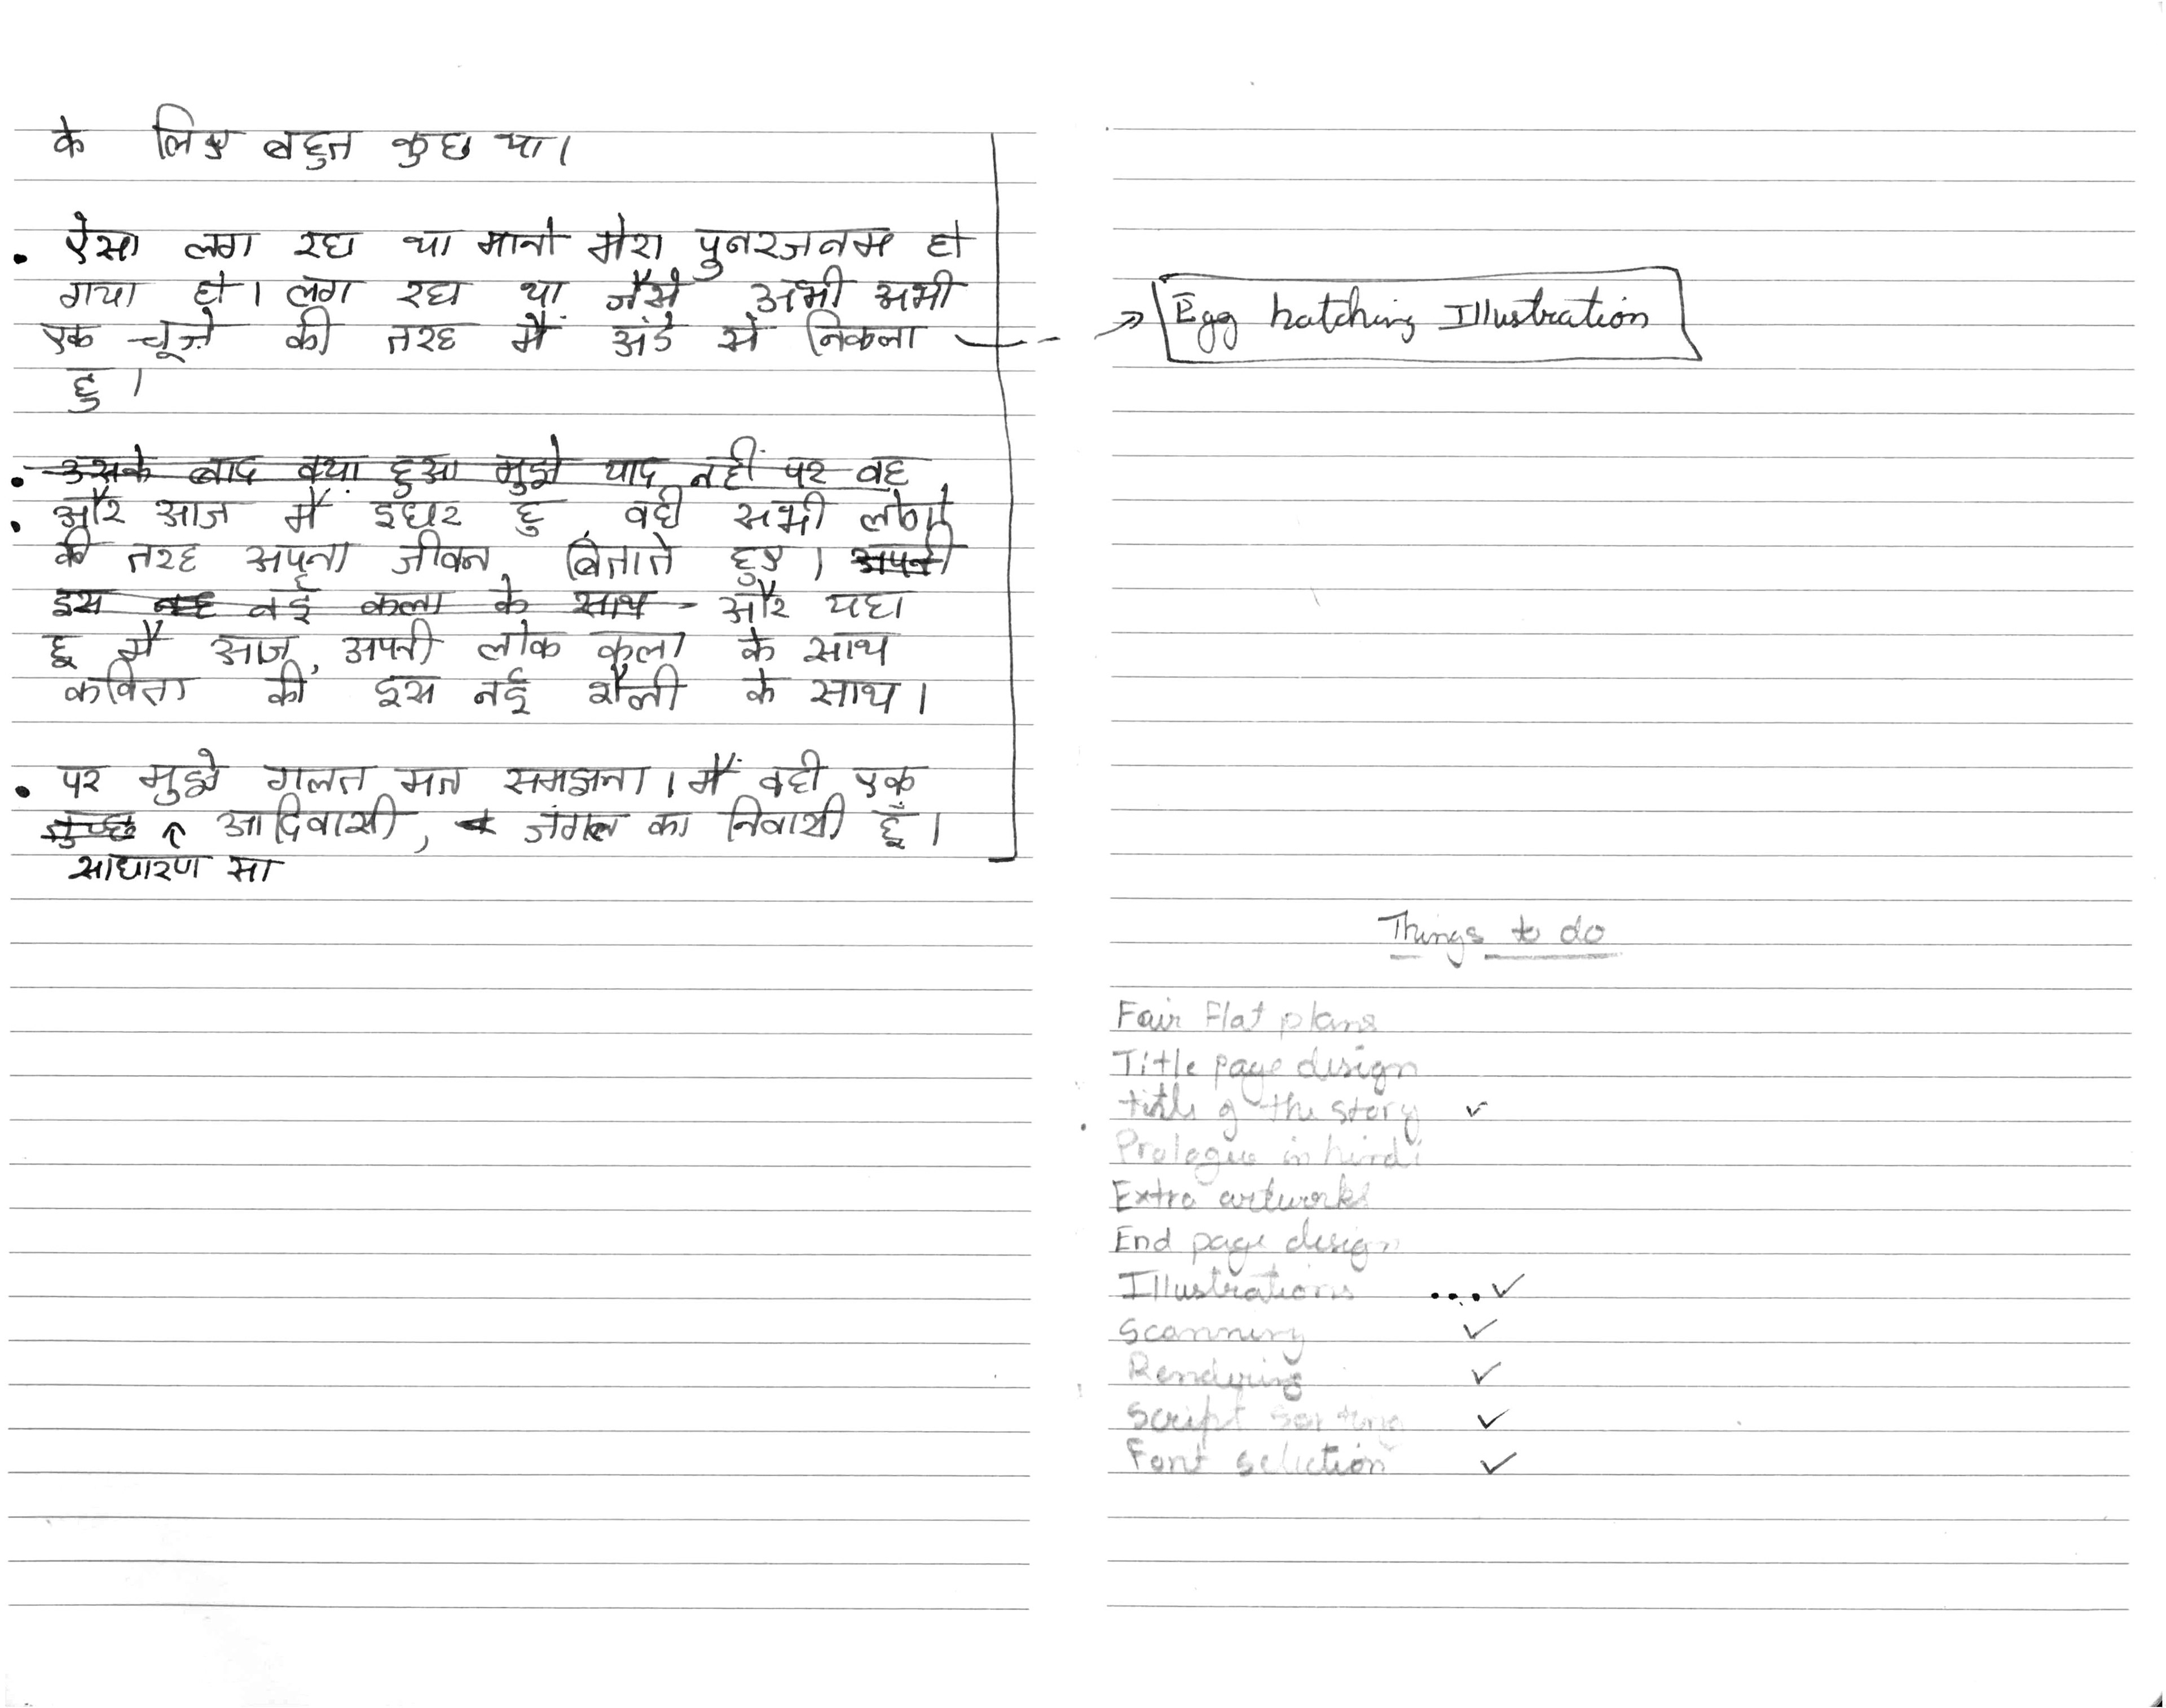 के लिए बहुत कुछ था।
• ऐसा लग रहा था मानो मेरा पुनरजनम हो
गया हो। लग रहा था जैसे अभी अभी
एक चूज़े की तरह मैं अंडे से निकला
हु।
• उसके बाद क्या हुआ मुझे याद नहीं पर वह
• और आज मैं इधर हु वही सभी लोगो
की तरह अपना जीवन बिताते हुए। अपनी
इस नई कला के साथ - और यहा
हू मैं आज, अपनी लोक कला के साथ
कविता की इस नई शैली के साथ।
• पर मुझे गलत मत समझना। मैं वही एक
तुच्छ आदिवासी, जंगल का निवासी हूँ।
साधारण सा
→ Egg hatching Illustration
Things to do
Fair Flat plans
Title page design
title of the story ✓
Prologue in hindi
Extra artworks
End page design
Illustrations .... ✓
Scanning ✓
Rendering ✓
Script sorting ✓
Font selection ✓